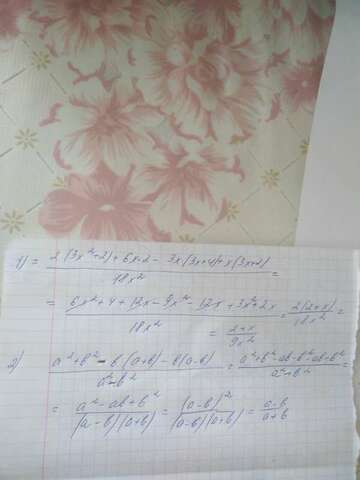 1) = 2(3x²+2)+6x·2 - 3x(3x+4)+x(3x+2) / 18x² =
= 6x²+4+12x-9x²-12x+3x²+2x / 18x² = 2(2+x) / 18x² =
= 2+x / 9x²
2) a²+b² - b(a+b) - b(a-b) / a²-b² = a²+b²-ab-b²-ab+b² / a²-b² =
= a²-ab+b² / (a-b)(a+b) = (a-b)² / (a-b)(a+b) = a-b / a+b